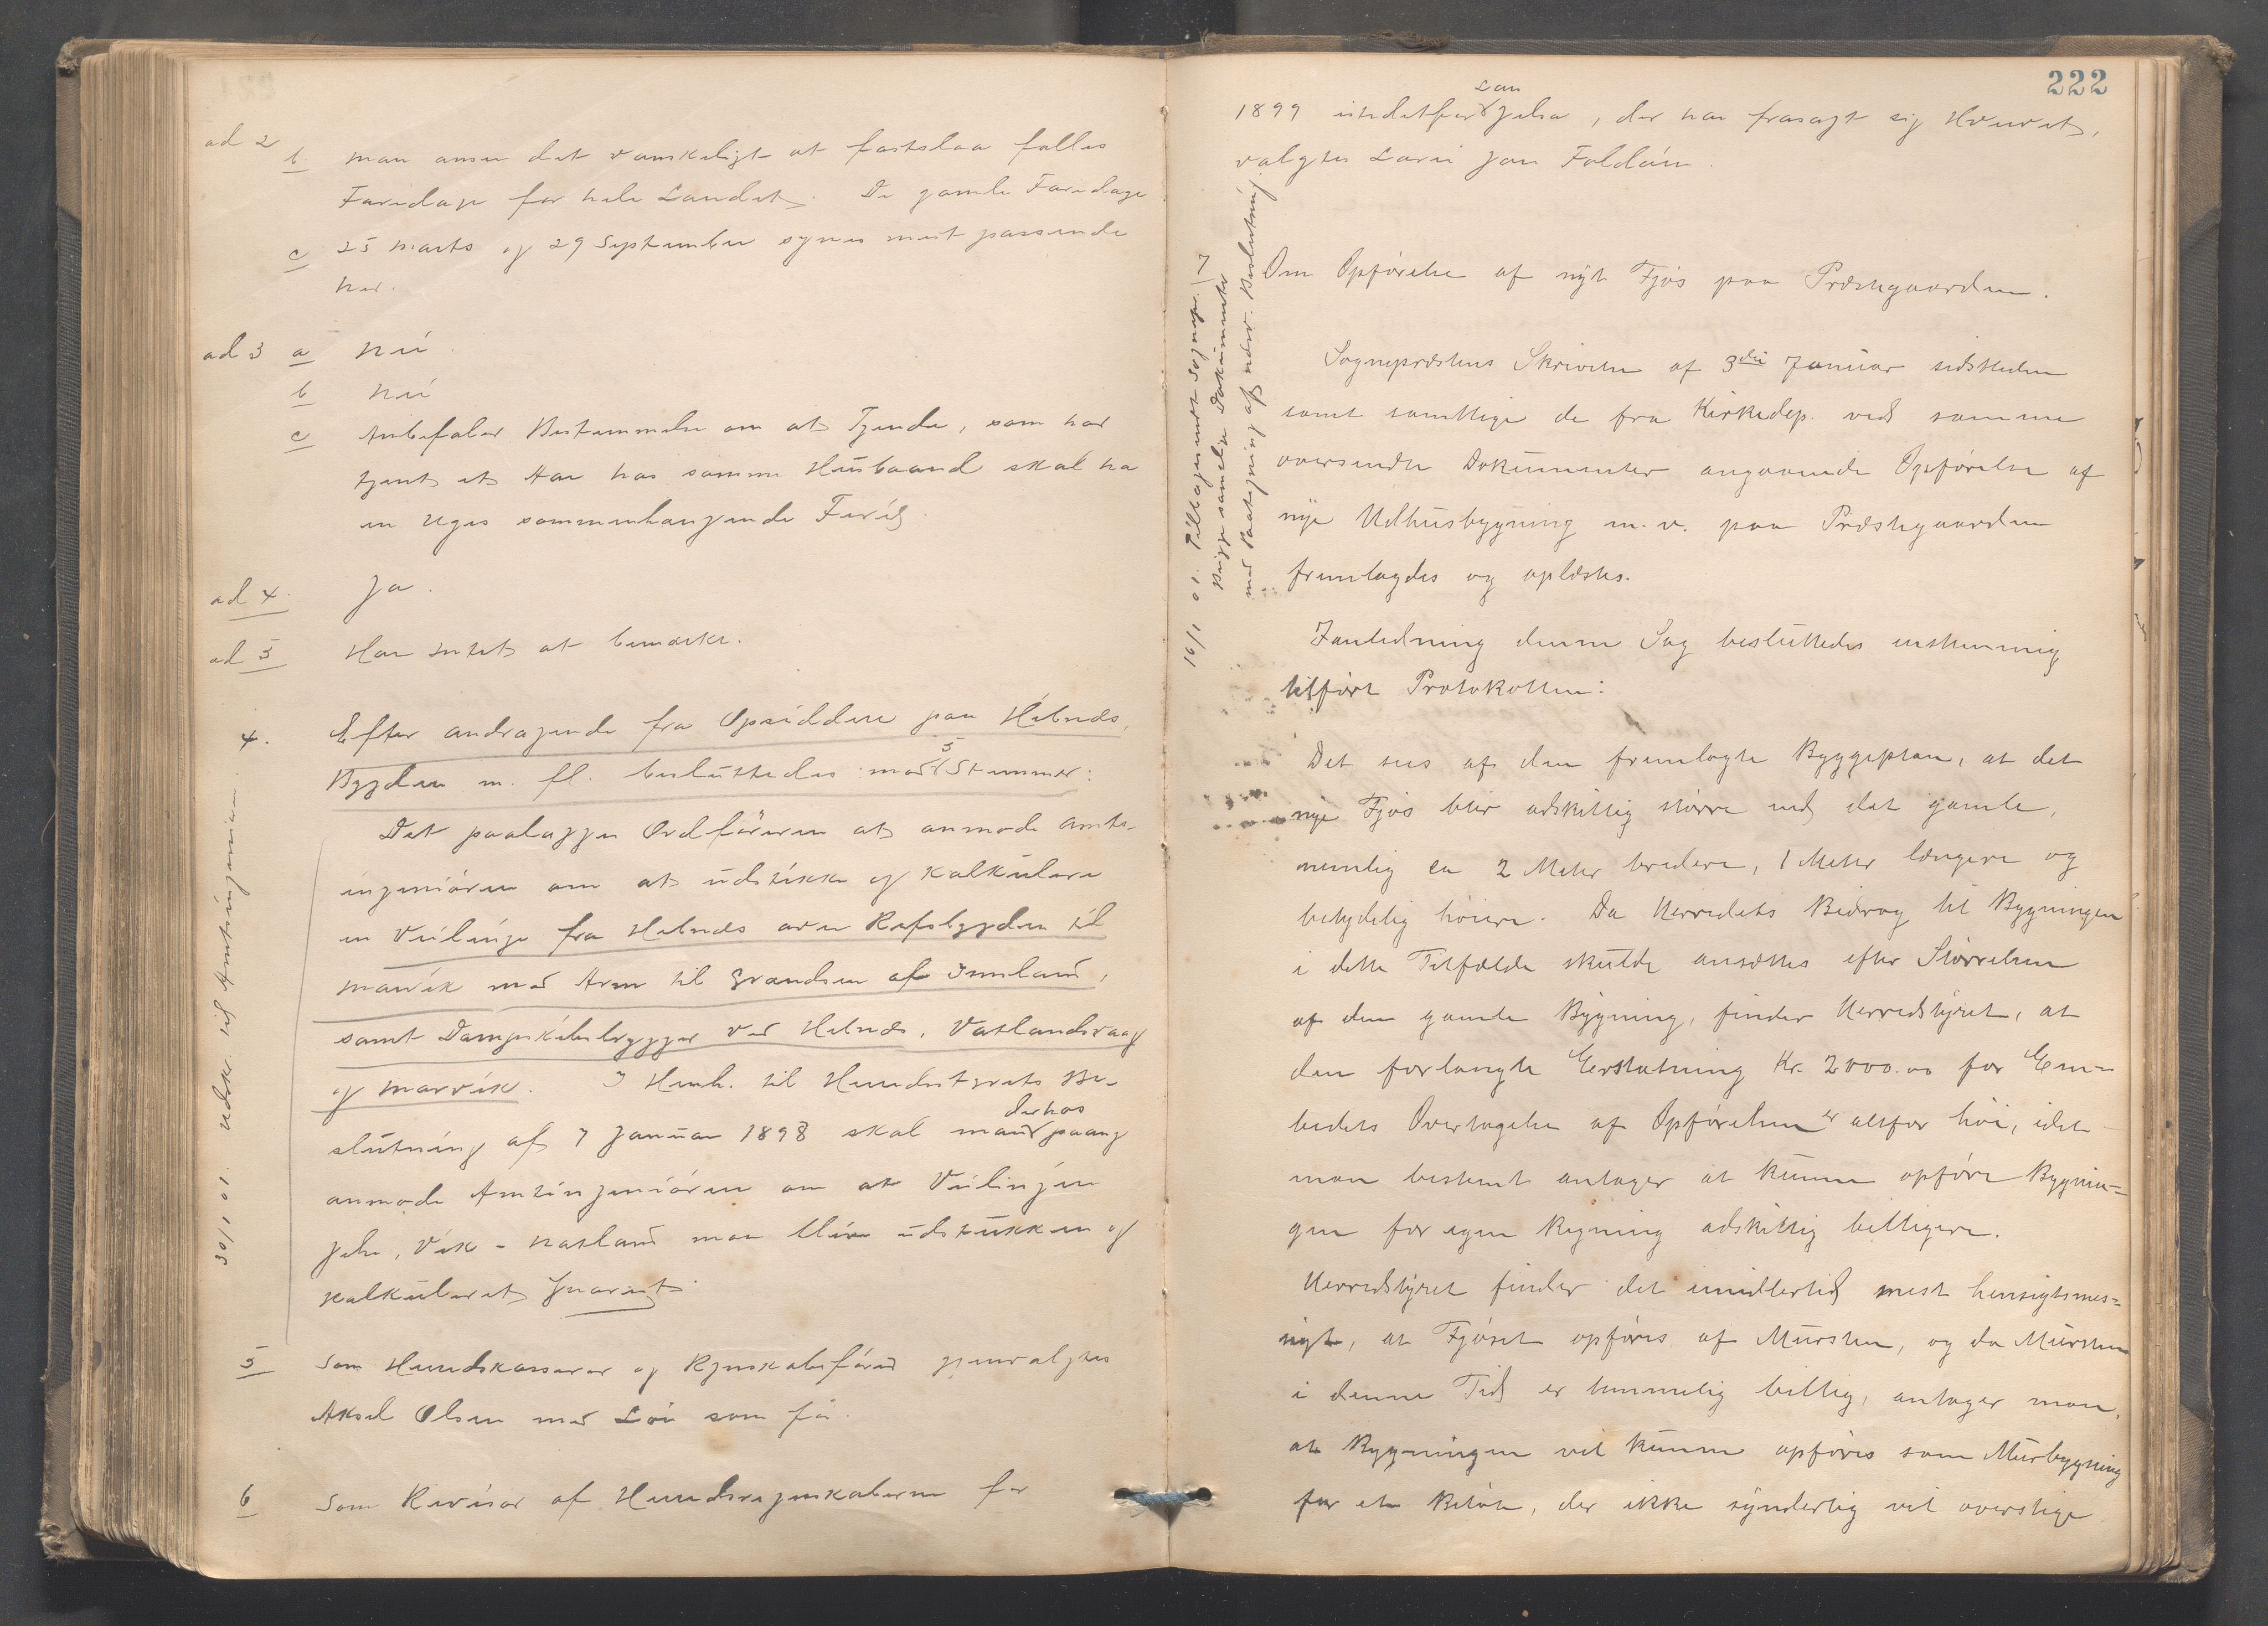 ad 2 b man anser det vanskeligt at fastslaa fælles
Faredage for hele Landet. De gamle Faredage
c 25 Marts og 29 September synes mest passende
her.
ad 3 a Nei.
b Nei
c Anbefaler Bestemmelse om at Tjende, som har
tjent et Aar hos samme Husbaand skal ha
en Uges sammenhængende Ferie.
ad 4. Ja.
ad 5 Har Intet at bemærke.
4. Efter andragende fra Opsiddere paa Hebnes,
Bygden m. fl. besluttedes med 5 Stemmer:
Det paalægges Ordføreren at anmode Amts-
ingeniøren om at udstikke og kalkulere
en Veilinje fra Hebnes over Refsbygden til
Marvik med Arm til Grændsen af Imsland,
samt Dampskibsbrygger ved Hebnes, Vatlandsvaag
og Marvik. I Henh. til Herredstyrets Be-
slutning af 7 Januar 1898 skal man derhos paany
anmode Amtsingeniøren om at Veilinjen
Jelse, Vik - Natland maa blive udstukken og
kalkuleret snarest.
30/1 01. Udskr. til Amtsingeniøren
5 Som Herredskasserer og Regnskabsfører gjenvalgtes
Aksel Olsen med Løn som før.
6 Som Revisor af Herredsregnskaberne for
222
1899 istedetfor Lars Jelsa, der har frasagt sig Hvervet,
valgtes Lærer Jon Foldøen.
7 Om Opførelse af nyt Fjøs paa Præstegaarden.
16/1 01. Tilbagesendt Sognepr.
begge samtlige Dokumenter
med Paategning af nærv. Beslutning
Sognepræstens Skrivelse af 3die Januar sidstleden
samt samtlige de fra Kirkedep. ved samme
oversendte Dokumenter angaaende Opførelse af
nye Udhusbygning m.v. paa Præstegaarden
fremlagdes og oplæstes.
I anledning denne Sag besluttedes enstemmig
tilført Protokollen:
Det sees af den fremlagte Byggeplan, at det
nye Fjøs blir adskillig større end det gamle,
nemlig ca 2 Meter bredere, 1 Meter længere og
betydelig høiere. Da Herredets Bidrag til Bygningen
i dette Tilfælde skulde ansættes efter Størrelsen
af den gamle Bygning, finder Herredstyret, at
den forlangte Erstatning Kr. 2000.00 for Em=
bedets Overtagelse af Opførelsen er altfor høi, idet
man bestemt antager at kunne opføre Bygnin=
gen for egen Regning adskillig billigere.
Herredstyret finder det imidlertid mest hensigtsmes=
sigt, at Fjøset opføres af Mursten, og da Mursten
i denne Tid er temmelig billig, antager man,
at Bygningen vil kunne opføres som Murbygning
for et Beløb, der ikke synderlig vil overstige